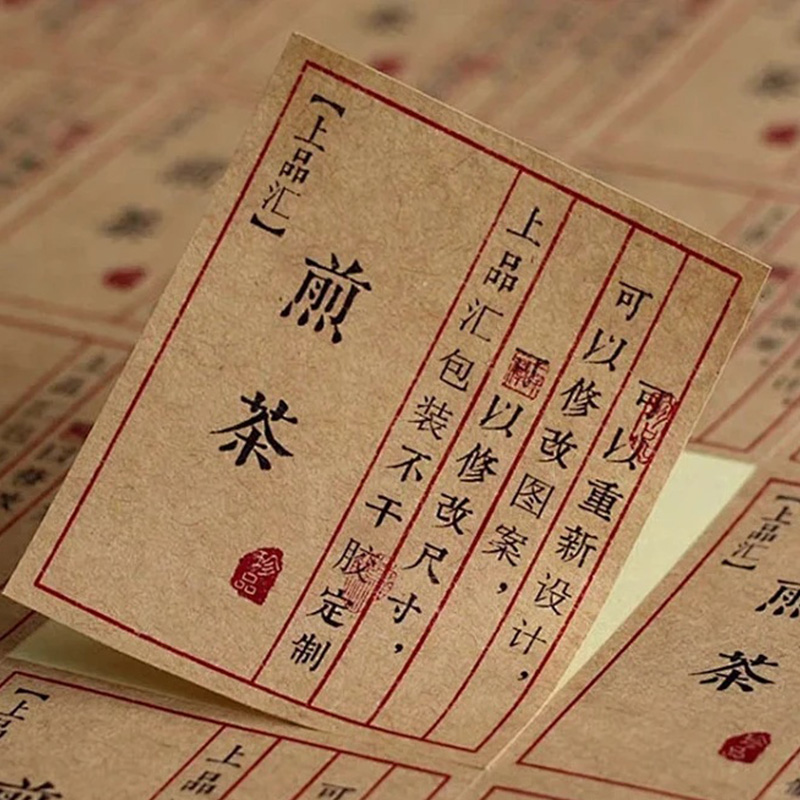 【上品汇】
煎茶
珍品
上品汇包装不干胶定制
可以修改尺寸，
可以修改图案，
可以重新设计，
【上品汇】
煎茶
珍品